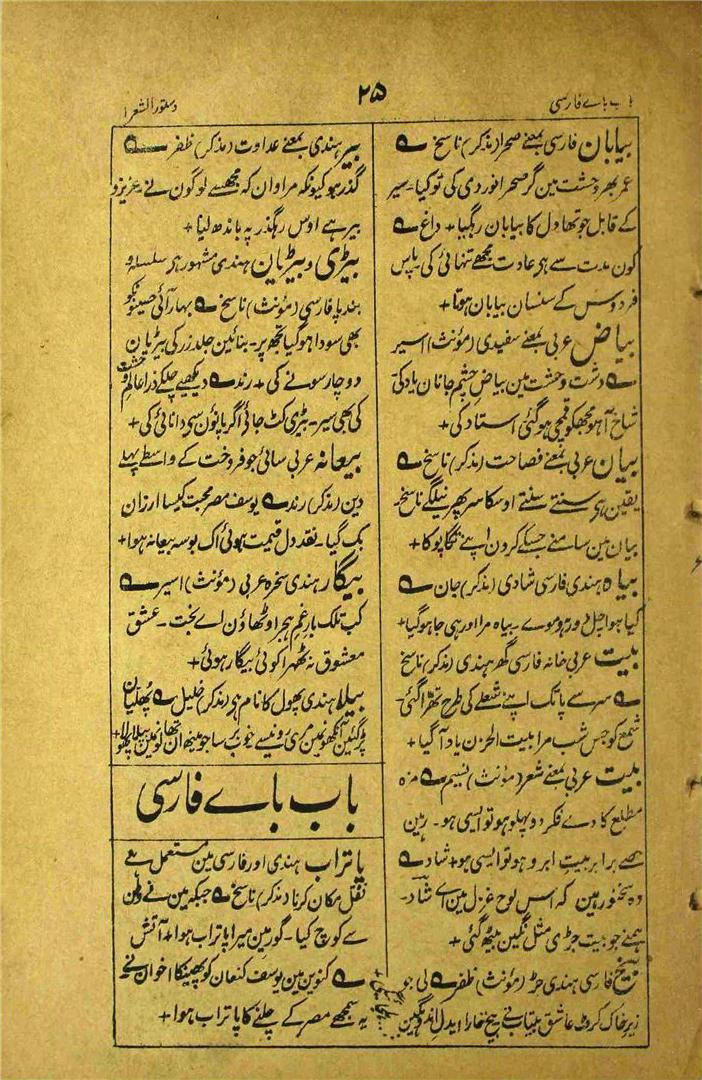 باب باے فارسی
۲۵
دستور الشعرا
بیابان فارسی بمعنے صحرا (مذکر) ناسخ ؎
عمر بھر وحشت مین گر صحرا نوردی کی تو کیا۔ سیر
کے قابل جو تھا دل کا بیابان رہگیا + داغ ؎
کون مدت سے ہے عادت مجھے تنہائی کی۔ پاس
فردوس کے سنسان بیابان ہوتا +
بیاض عربی بمعنے سفیدی (مؤنث) اسیر
؎ دشت وحشت مین بیاض چشم جانان یاد کی
شاخ آہو مجھکو قمچی ہو گئی استاد کی +
بیان عربی بمعنے فصاحت (مذکر) ناسخ ؎
یقین ہے سنتے سنتے اوسکا سر پھر نیگا ناسخ۔
بیان مین سامنے جسکے کرون اپنے تگاپو کا +
بیاہ ہندی فارسی شادی (مذکر) جان ؎
کیا ہوا چل دور ہو موے۔ بیاہ مرا اور ہی جا ہو گیا +
بیت عربی خانہ فارسی گھر ہندی (مذکر) ناسخ
؎ سر سے پا تک اپنے شعلے کی طرح تھرا گئی۔
شمع کو جس شب مرا بیت الحزن یاد آ گیا +
بیت عربی بمعنے شعر (مؤنث) نسیم ؎ مزہ
مطلع کا دے فکر دو پہلو ہو تو ایسی ہو۔ رہین
حصے برابر بیت ابرو ہو تو ایسی ہو + شاد ؎
وہ سخنور ہین کہ اس لوح غزل مین اے شاد۔
ہمنے جو بیت جڑی مثل نگین بیٹھ گئی +
بیخ فارسی ہندی جڑ (مؤنث) ظفر ؎ لی جو
زیر خاک کروٹ عاشق بیتاب نے بیخ خارا
بیر ہندی بمعنے عداوت (مذکر) ظفر ؎
گذر ہو کیونکہ مرا وان کہ مجھسے لوگون نے۔ عزیزو
بیر ہے اوس رہگذر پہ باندھ لیا +
بیڑی و بیڑیان ہندی مشہور ہے سلسلہ و
بند پا فارسی (مؤنث) ناسخ ؎ بہار آئی حسینونکو
بھی سودا ہو گیا تجھ پر۔ بنائین جلد زر کی بیڑیان
دو چار سونے کی + رند ؎ دیکھیے چلکے ذرا عالم وحشت
کی بھی سیر۔ بیڑی کٹ جائے اگر پانون سے دانائی کی +
بیعانہ عربی سائی جو فروخت کے واسطے پہلے
دین (مذکر) رند ؎ یوسف مصر محبت کیسا ارزان
بک گیا۔ نقد دل قیمت ہوئی اک بوسہ بیعانہ ہوا +
بیگار ہندی سخرہ عربی (مؤنث) اسیر ؎
کب تلک بار غم ہجر اوٹھاؤن اے بخت۔ عشق
معشوق نہ ٹھہرا کوئی بیگار ہوئی +
بیلا ہندی پھول کا نام ہے (مذکر) خلیل ؎ پھلیان
پڑ گئین آنکھونمین مری رونیسے
باب باے فارسی
پاتراب ہندی اور فارسی مین مستعمل ہے
نقل مکان کرنا (مذکر) ناسخ ؎ جبکہ مین نے وطن
سے کوچ کیا۔ گور مین میرا پاتراب ہوا + آتش
؎ کنوین مین یوسف کنعان کو پھینکا اخوان نے
یہ سمجھے مصر کے چلنے کا پاتراب ہوا +